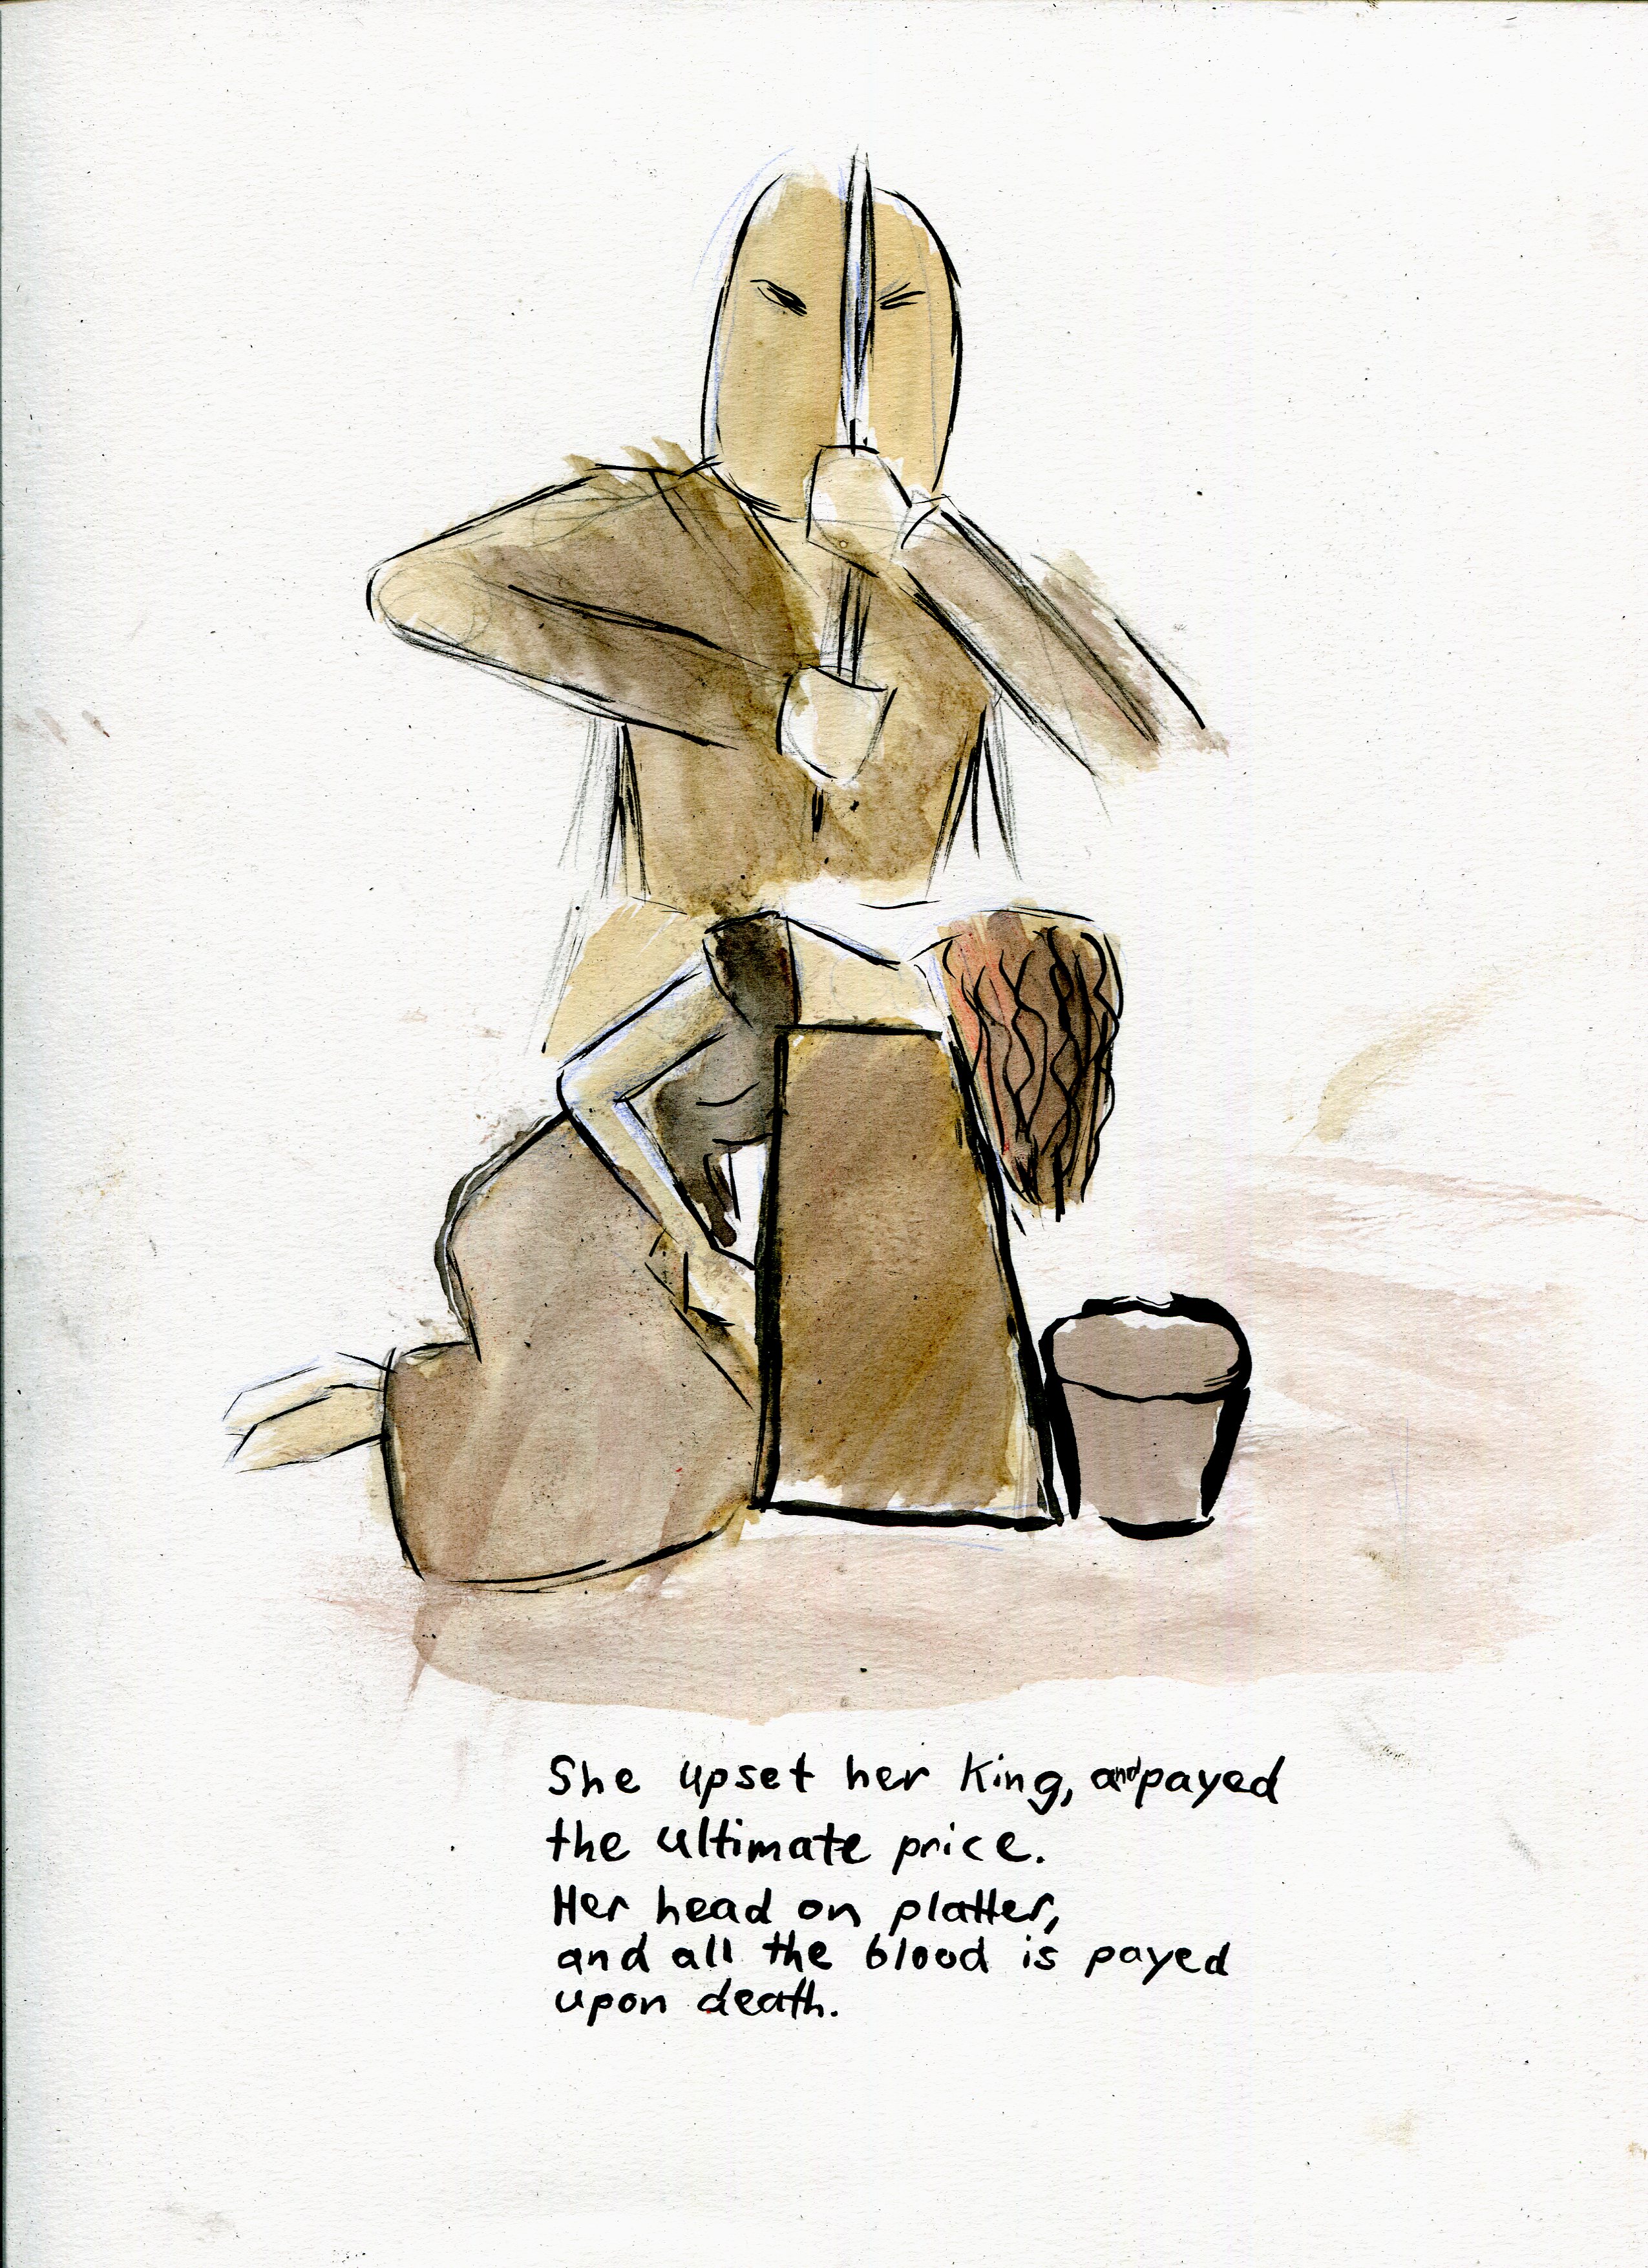 She upset her King, and payed
the ultimate price.
Her head on platter,
and all the blood is payed
upon death.